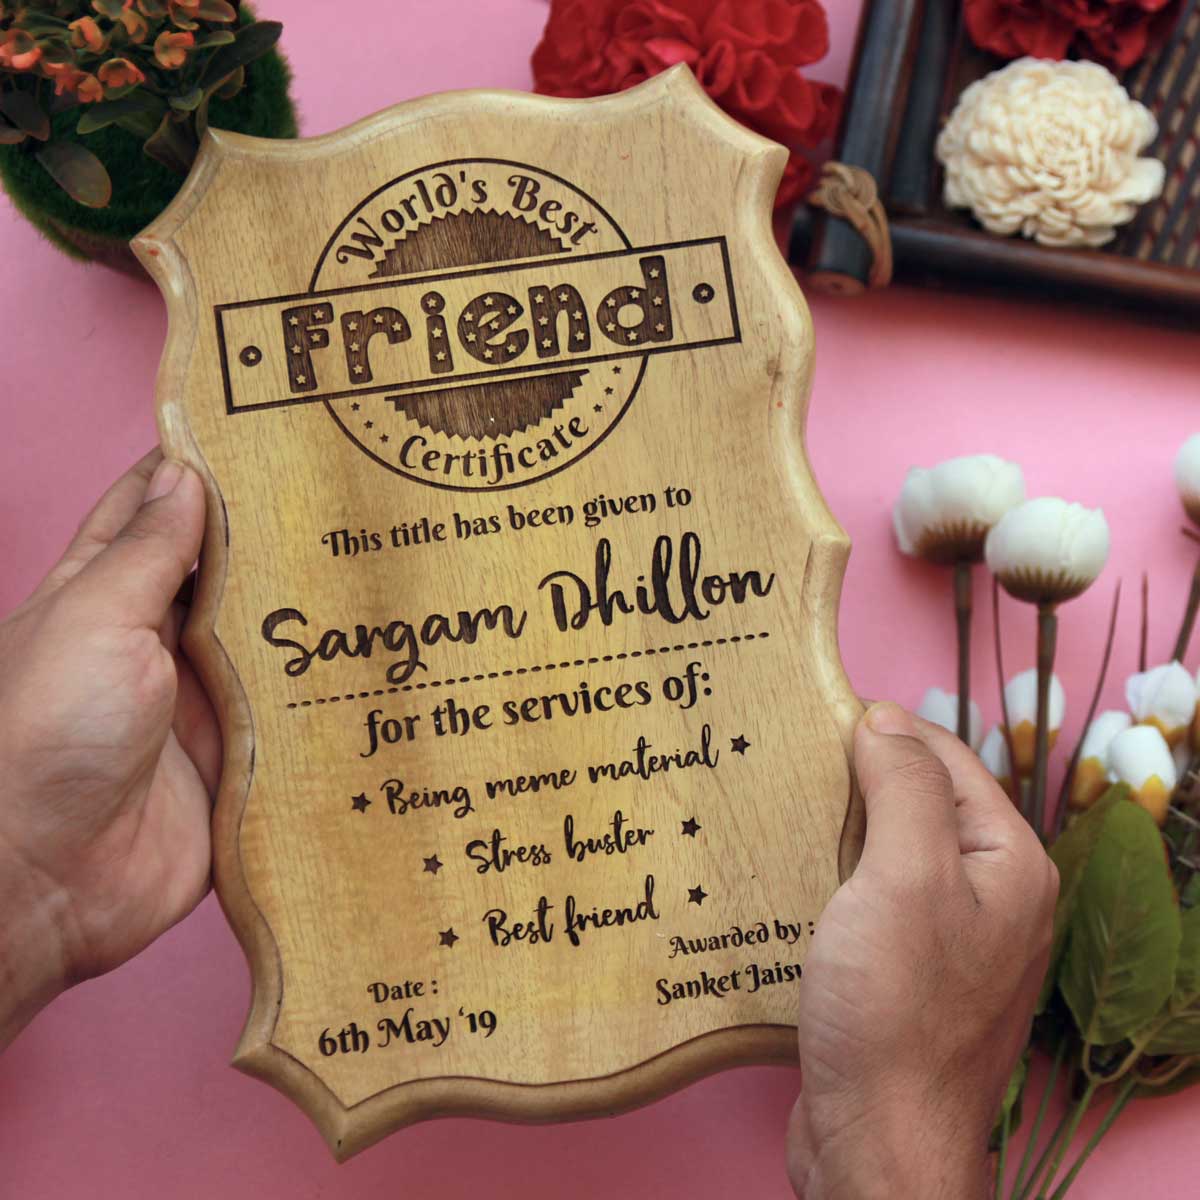 World's Best
Friend
Certificate
This title has been given to
Sargam Dhillon
for the services of:
Being meme material
Stress buster
Best friend
Awarded by :
Sanket
Date :
6th May ‘19